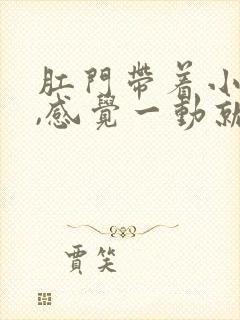 肛門帶着小
,感覺一動就
賈笑